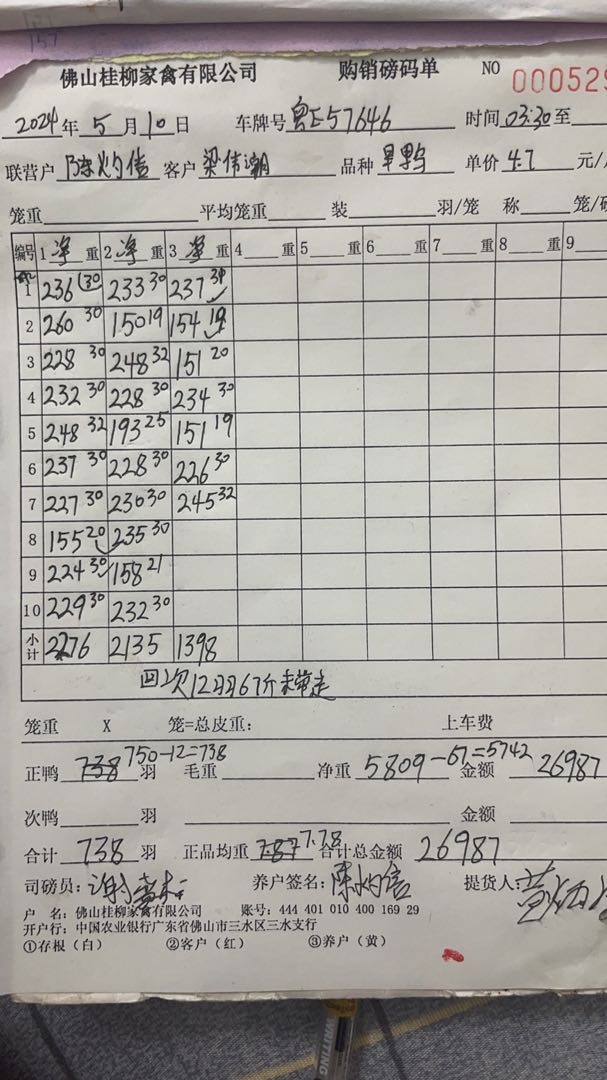 157
佛山桂柳家禽有限公司 购销磅码单 NO 000529
2024年5月10日 车牌号 粤E57646 时间 03:30至
联营户 陈灼信 客户 梁伟潮 品种 旱鸭 单价 4.7 元/
笼重 平均笼重 装 羽/笼 称 笼/
编号 1 净 重 2 净 重 3 净 重 4 重 5 重 6 重 7 重 8 重 9
1 236 30 233 30 237 31
2 260 30 150 19 154 19
3 228 30 248 32 151 20
4 232 30 228 30 234 30
5 248 32 193 25 151 19
6 237 30 228 30 226 30
7 227 30 230 30 245 32
8 155 20 235 30
9 224 30 158 21
10 229 30 232 30
小计 2276 2135 1398
回次12羽67斤未带走
笼重 X 笼=总皮重: 上车费
750-12=738 5809-67=5742
正鸭 738 羽 毛重 净重 金额 26987
次鸭 羽 金额
合计 738 羽 正品均重 787 7.78 合计总金额 26987
司磅员: 养户签名: 陈灼信 提货人: 黄
户 名: 佛山桂柳家禽有限公司 账号: 444 401 010 400 169 29
开户行: 中国农业银行广东省佛山市三水区三水支行
①存根(白) ②客户(红) ③养户(黄)
WRITING